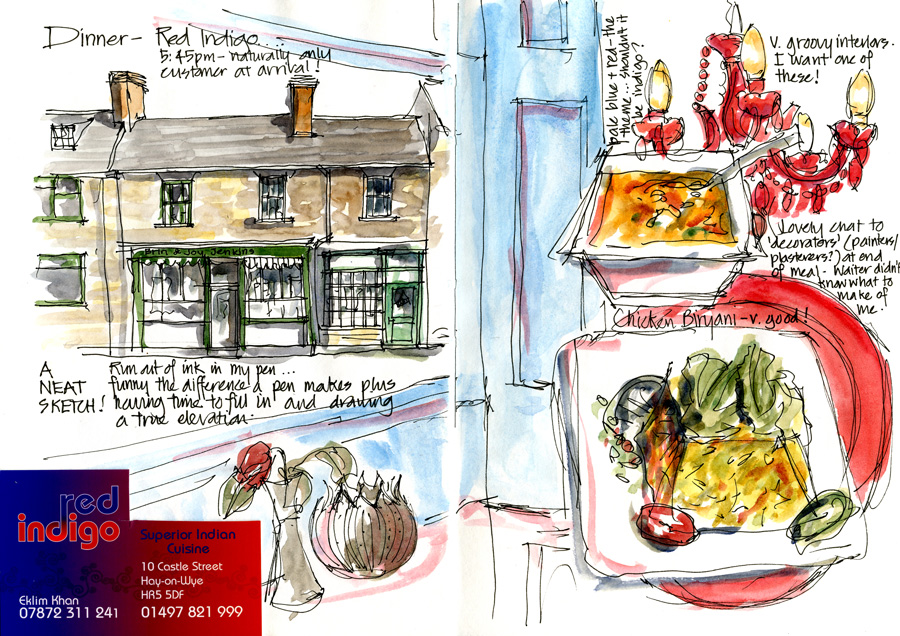 Dinner- Red Indigo....
5:45pm - naturally only
customer at arrival!
Brin & Joy Jenkins
A
NEAT
SKETCH!
Run out of ink in my pen ...
funny the difference a pen makes plus
having time to fill in and drawing
a true elevation-
red
indigo
Eklim Khan
07872 311 241
Superior Indian
Cuisine
10 Castle Street
Hay-on-Wye
HR5 5DF
01497 821 999
pale blue + red - the
theme... shouldn't it
be indigo?
V. groovy interiors.
I want one of
these!
Lovely chat to
'decorators' (painters/
plasterers?) at end
of meal - Waiter didn't
know what to
make of
me!
Chicken Biryani - v. good!